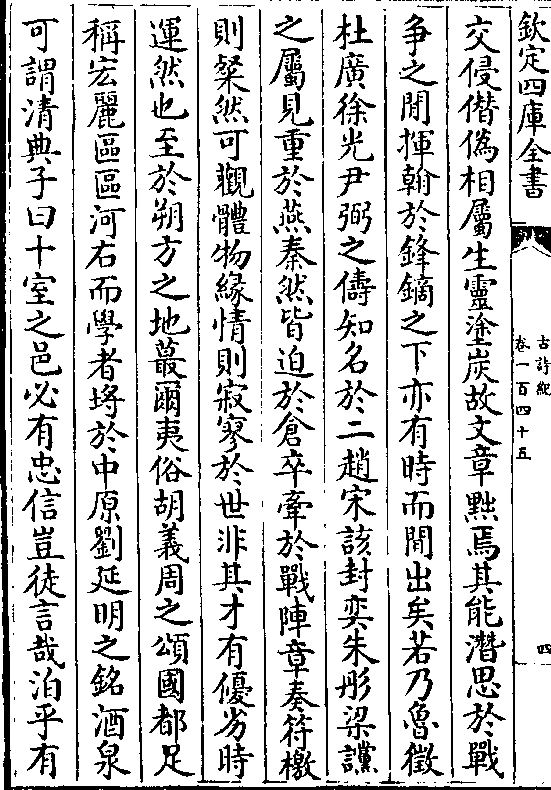 欽定四庫全書
古詩紀
卷一百四十五
四
交侵僭僞相屬生靈塗炭故文章黜焉其能潛思於戰
争之間揮翰於鋒鏑之下亦有時而間出矣若乃魯徵
杜廣徐光尹弼之儔知名於二趙宋該封奕朱彤梁讜
之屬見重於燕秦然皆迫於倉卒牽於戰陣章奏符檄
則粲然可觀體物緣情則寂寥於世非其才有優劣時
運然也至於朔方之地蕞爾夷俗胡義周之頌國都足
稱宏麗區區河右而學者埒於中原劉延明之銘酒泉
可謂清典子曰十室之邑必有忠信豈徒言哉洎乎有